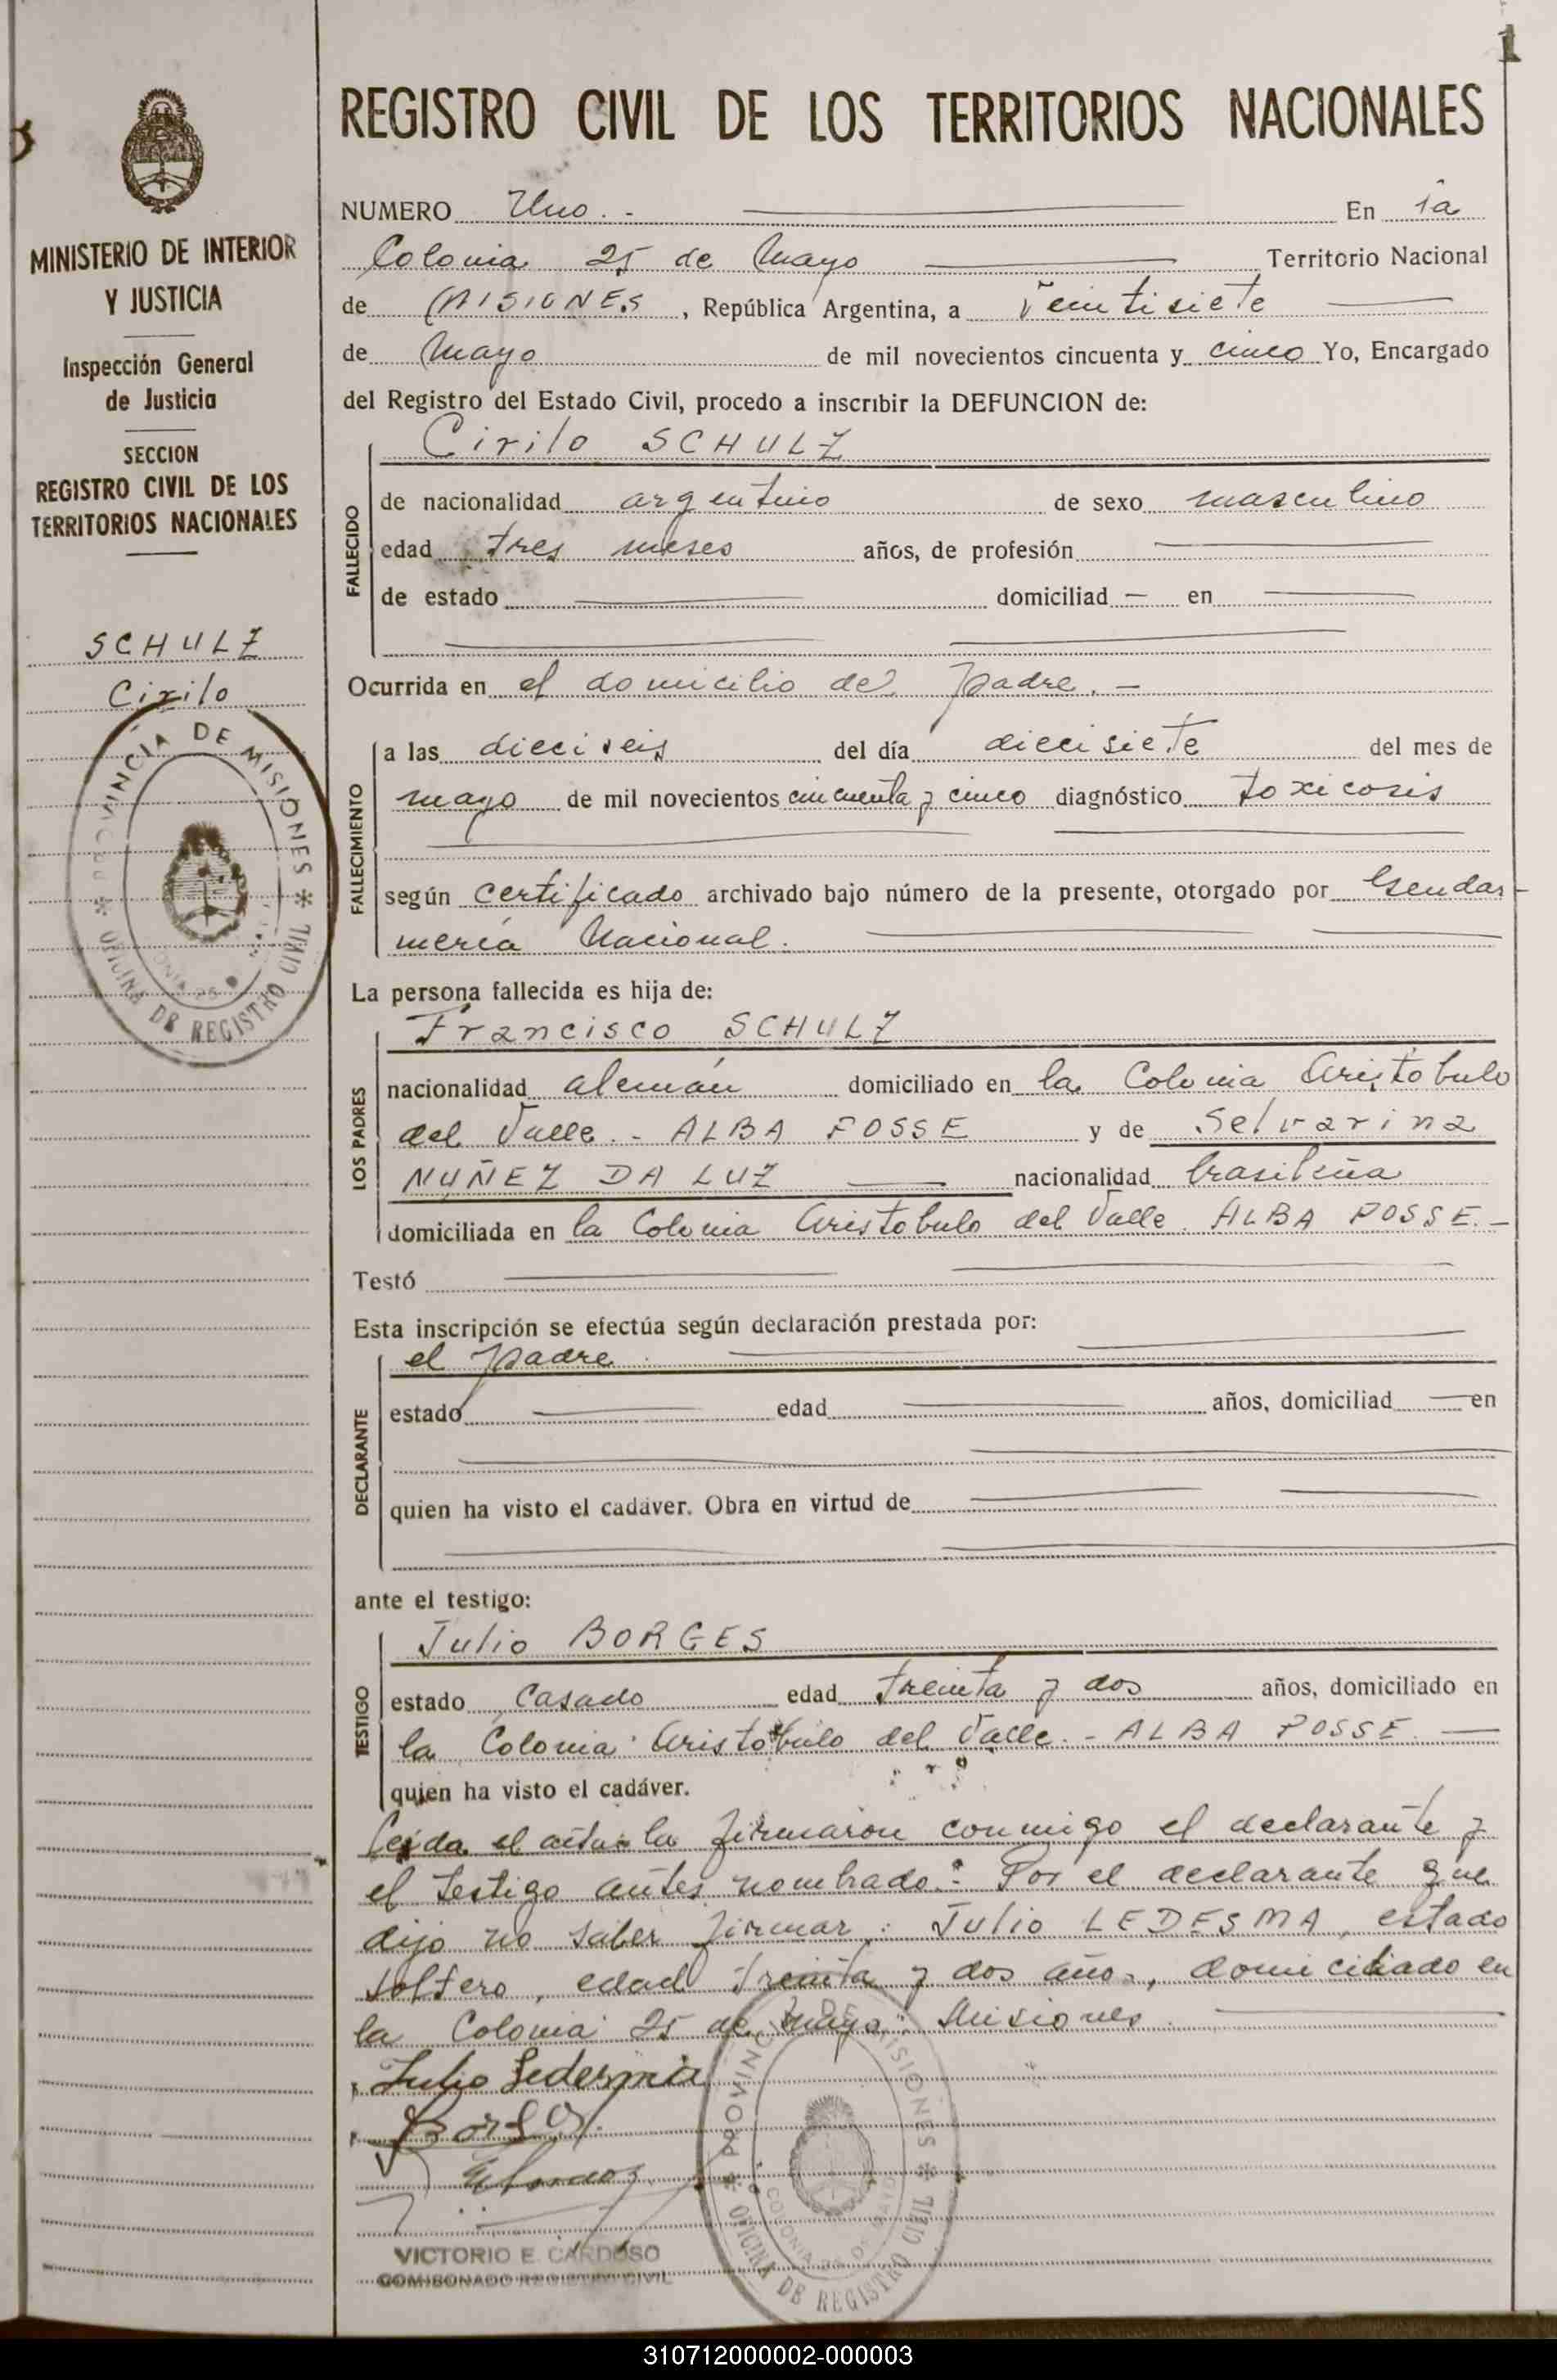 1
REGISTRO CIVIL DE LOS TERRITORIOS NACIONALES
MINISTERIO DE INTERIOR
Y JUSTICIA
Inspección General
de Justicia
SECCION
REGISTRO CIVIL DE LOS
TERRITORIOS NACIONALES
SCHULZ
Cirilo
PROVINCIA DE MISIONES * OFICINA DE REGISTRO CIVIL *
NUMERO Uno. - En la
Colonia 25 de Mayo Territorio Nacional
de MISIONES, República Argentina, a Veintisiete
de Mayo de mil novecientos cincuenta y cinco Yo, Encargado
del Registro del Estado Civil, procedo a inscribir la DEFUNCION de:
Cirilo SCHULZ
FALLECIDO
de nacionalidad argentino de sexo masculino
edad tres meses años, de profesión
de estado domiciliad — en
Ocurrida en el domicilio del padre. -
FALLECIMIENTO
a las dieciseis del día diecisiete del mes de
mayo de mil novecientos cincuenta y cinco diagnóstico toxicosis
según certificado archivado bajo número de la presente, otorgado por Gendar-
mería Nacional.
La persona fallecida es hija de:
Francisco SCHULZ
LOS PADRES
nacionalidad alemán domiciliado en la Colonia Aristobulo
del Valle. - ALBA POSSE y de Selvarina
NUÑEZ DA LUZ nacionalidad brasileña
domiciliada en la Colonia Aristobulo del Valle. ALBA POSSE. -
Testó
Esta inscripción se efectúa según declaración prestada por:
el padre.
DECLARANTE
estado edad años, domiciliad en
quien ha visto el cadáver. Obra en virtud de
ante el testigo:
Julio BORGES
TESTIGO
estado Casado edad treinta y dos años, domiciliado en
la Colonia Aristobulo del Valle. - ALBA POSSE.
quien ha visto el cadáver.
Leida el acta la firmaron conmigo el declarante y
el testigo antes nombrado. - Por el declarante que
dijo no saber firmar: Julio LEDESMA, estado
soltero, edad treinta y dos años, domiciliado en
la Colonia 25 de Mayo. Misiones.
Julio Ledesma
Borges
PROVINCIA DE MISIONES * OFICINA DE REGISTRO CIVIL *
COLONIA 25 DE MAYO
VICTORIO E. CARDOSO
COMISONADO REGISTRO CIVIL
310712000002-000003